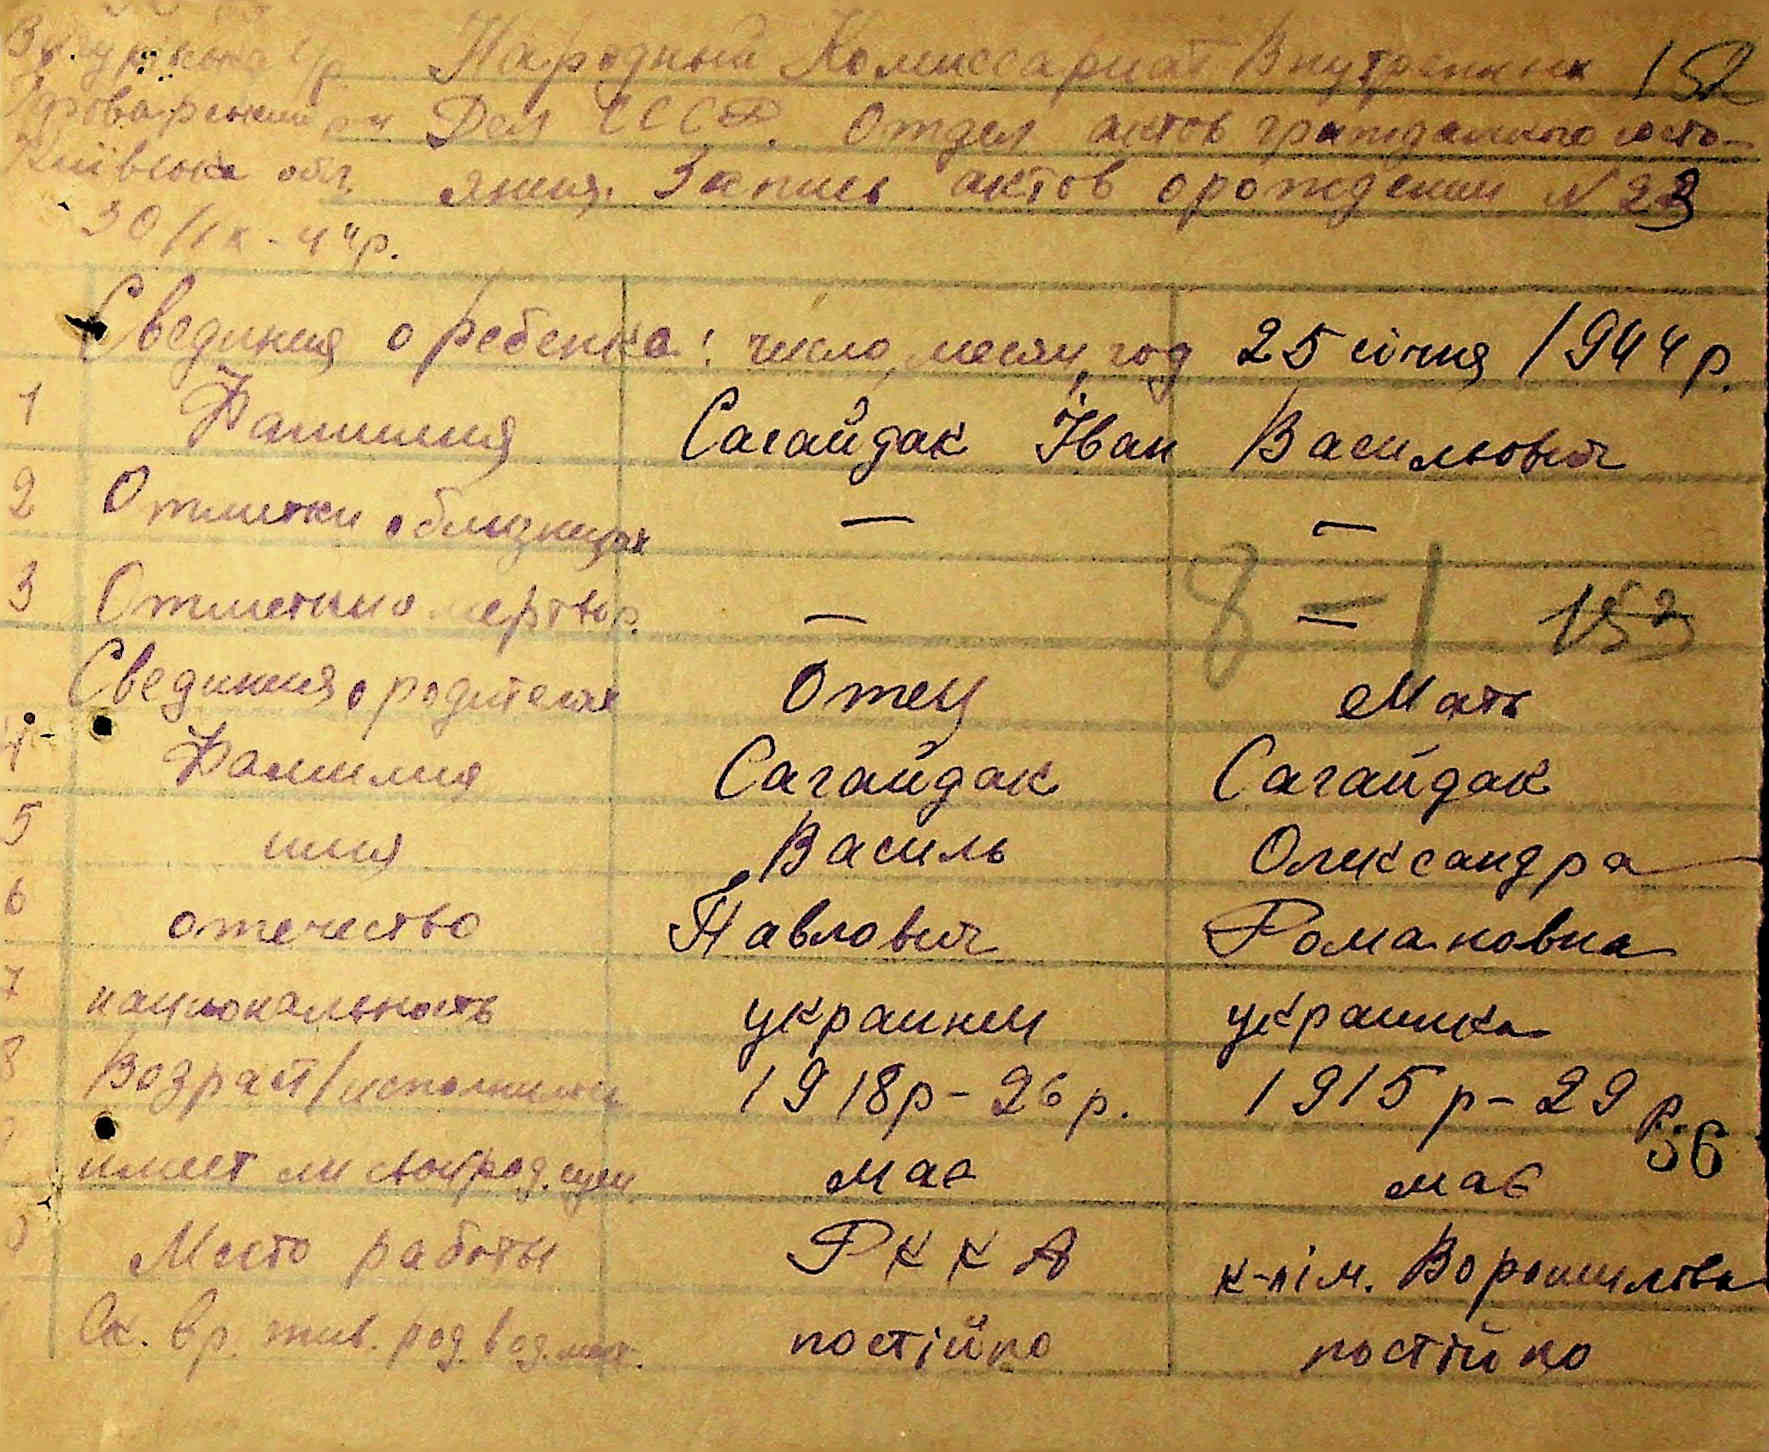 Народный Комиссариат Внутренних 152
Броварский р-н Дел СССР. Отдел актов гражданского состо-
Київська обл. яния. Запись актов о рождении N 23
30/IX-44р.
Сведения о ребенке: число, месяц, год 25 січня 1944 р.
1 Фамилия Сагайдак Іван Васильович
2 Отметки о близнецах — —
3 Отметки о мертвор. — 8 = 1 153
Сведения о родителях Отец Мать
4 Фамилия Сагайдак Сагайдак
5 имя Василь Олександра
6 отечество Павлович Романовна
7 национальность украинец украинка
8 Возраст/исполнилось 1918р - 26 р. 1915 р - 29 р.
56
имеет ли має має
Место работы РККА к-п ім. Ворошилова
Ск. вр. жив. род. в постійно постійно